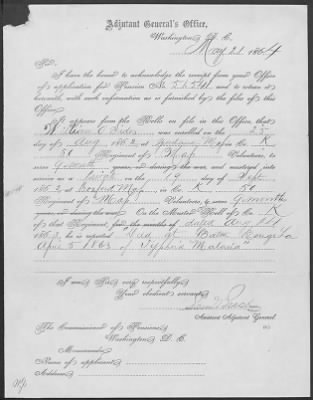 Adjutant General's Office,
Washington, D. C.
May 21, 1864
Sir,
I have the honor to acknowledge the receipt from your Office
of application for Pension No. and to return it
herewith, with such information as is furnished by the files of this
Office.
It appears from the Rolls on file in this Office, that
was enrolled on the 25
day of Aug, 1862, at in Co. K
50 Regiment of Mass Volunteers, to
serve 9 months years, or during the war, and mustered into
service as a Private on the 19 day of Sept.
1862, at Mass, in Co. K 50
Regiment of Mass Volunteers, to serve 9 months
years, or during the war. On the Muster Roll of Co. K
of that Regiment, for the months of dated Aug
1863, he is reported "Died at Baton Rouge La
April 5 1863 of Typhoid Malaria"
I am, Sir, very respectfully,
Your obedient servant,
Assistant Adjutant General
The Commissioner of Pensions,
Washington, D. C.
Memoranda:
Name of applicant,
Address,